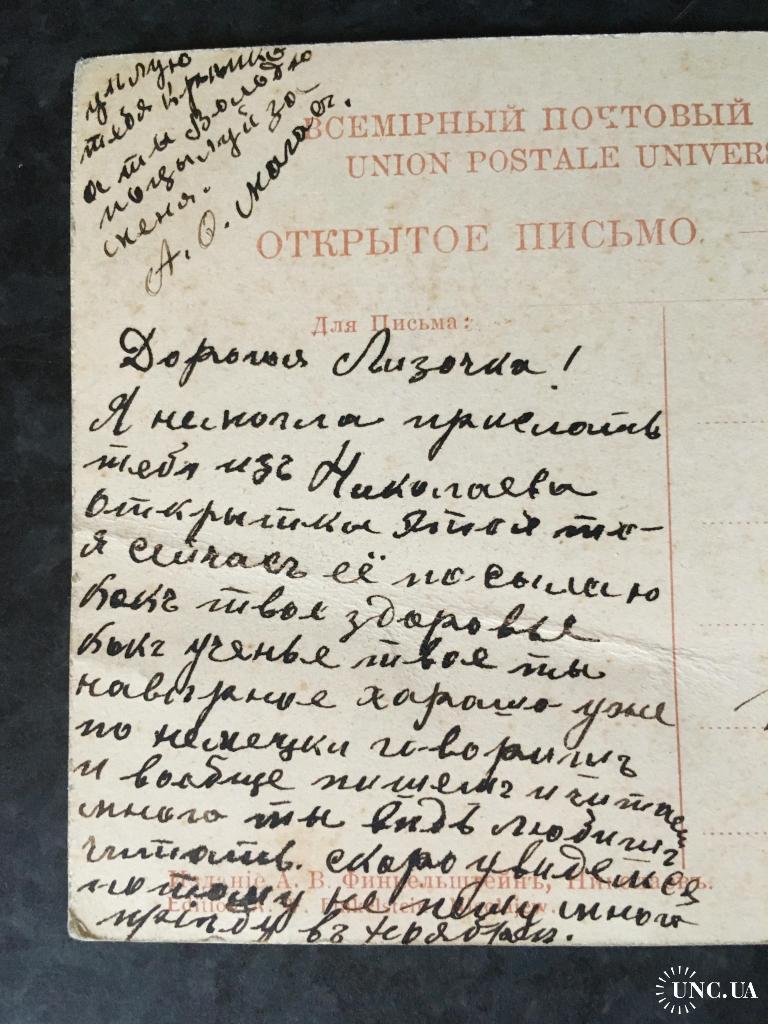 цѣлую
тебя крѣпко
а ты Володю
поцылуй за
меня.
А. О.
ВСЕМІРНЫЙ ПОЧТОВЫЙ
UNION POSTALE UNIVERS
ОТКРЫТОЕ ПИСЬМО.
Для Письма:
Дорогая Лизочка!
Я немогла прислать
тебя изъ Николаева
открытка этой то-
я сейчасъ её посылаю
какъ твое здоровье
какъ ученье твое ты
навѣрное хорошо уже
по немецки говоришъ
и вообще пишешъ и читаеш
много ты вѣдь любишъ
читать. скоро увидемся
Изданіе А. В. Финкельштейнъ, Николаевъ.
потому не пешу много
пріѣду въ ноябрѣ.
UNC.UA